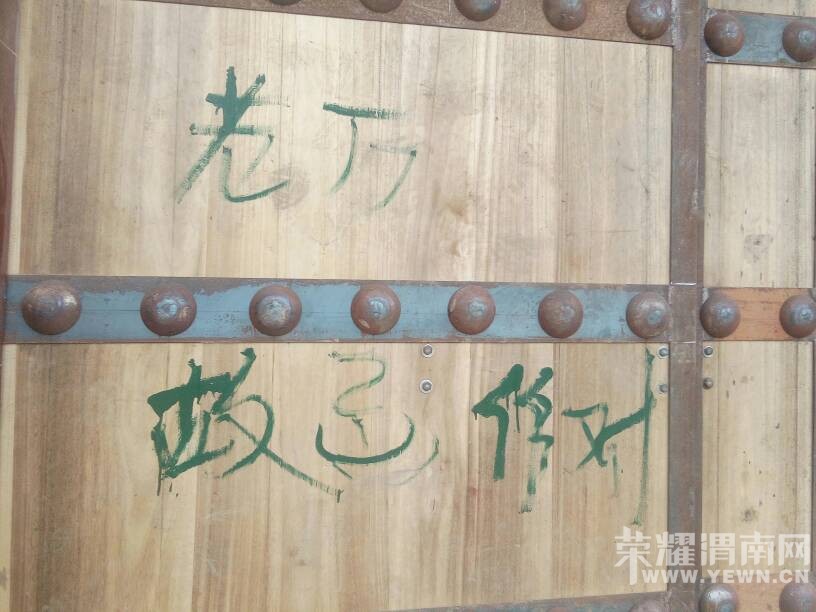 老万
故
修对
荣耀渭南网
WWW.YEWN.CN